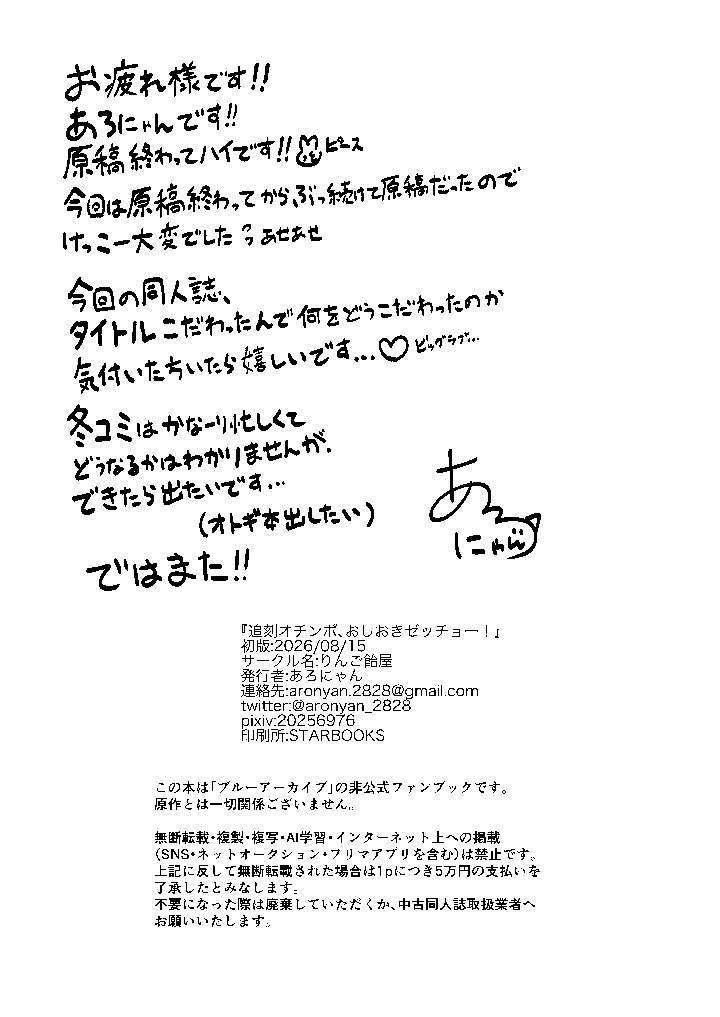 お疲れ様です!!
あろにゃんです!!
原稿終わってハイです!! ピース
今回は原稿終わってから、ぶっ続けて原稿だったので
けっこー大変でした あせあせ
今回の同人誌、
タイトルこだわったんで何をどうこだわったのか
気付いたらいたら嬉しいです...♡ ビッグラブ...
冬コミはかなーり忙しくて
どうなるかはわかりませんが、
できたら出たいです...
(オトギ本出したい)
ではまた!!
あろ
にゃん
『追刻オチンポ、おしおきゼッチョー！』
初版:2026/08/15
サークル名:りんご飴屋
発行者:あろにゃん
連絡先:aronyan.2828@gmail.com
twitter:@aronyan_2828
pixiv:20256976
印刷所:STARBOOKS
この本は「ブルーアーカイブ」の非公式ファンブックです。
原作とは一切関係ございません。
無断転載・複製・複写・AI学習・インターネット上への掲載
（SNS・ネットオークション・フリマアプリを含む）は禁止です。
上記に反して無断転載された場合は1pにつき5万円の支払いを
了承したとみなします。
不要になった際は廃棄していただくか、中古同人誌取扱業者へ
お願いいたします。